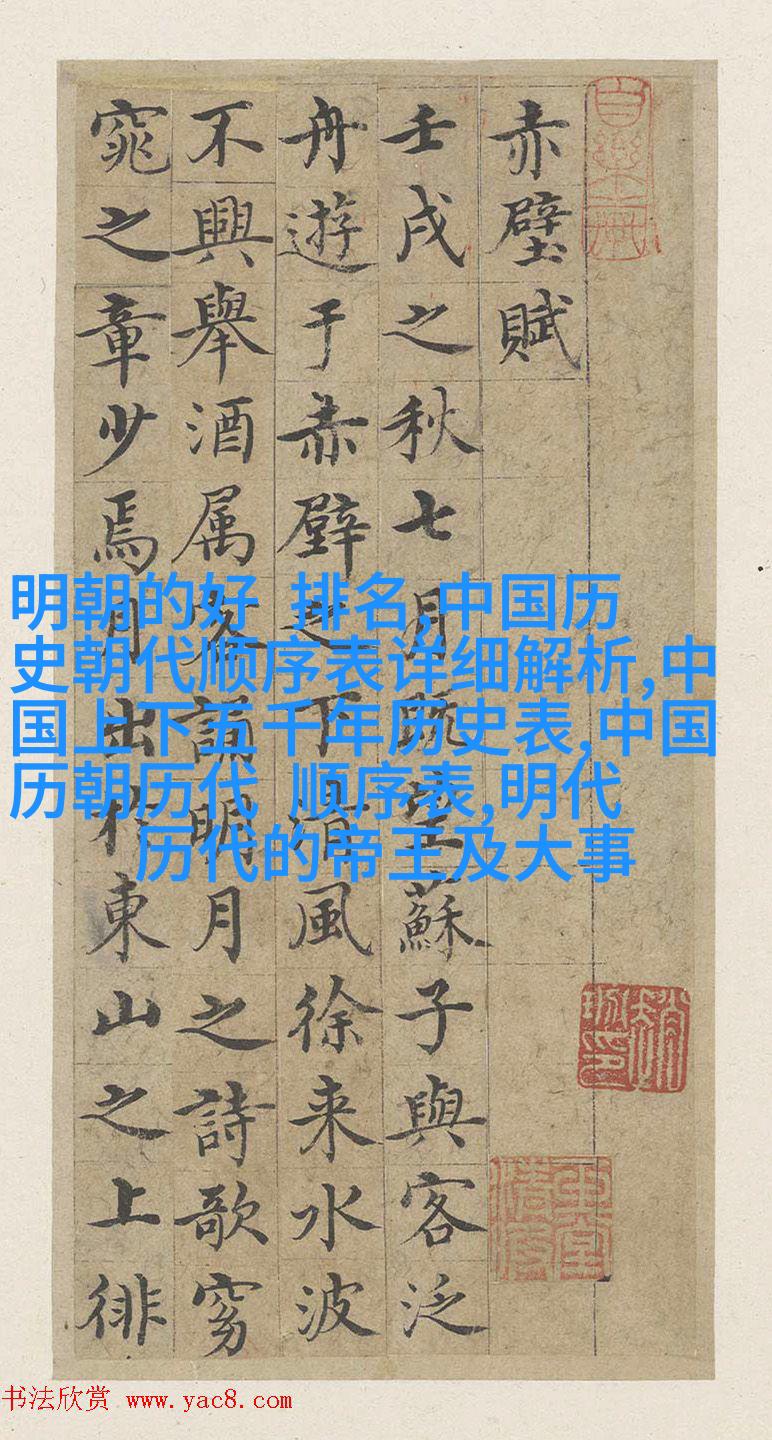 赤壁賦
壬戌之秋七月既望蘇子與客泛
舟遊于赤壁之下清風徐来水波
不興舉酒属客誦明月之詩歌窈
窕之章少焉月出於東山之上徘
明朝的好 排名,中国历
史朝代顺序表详细解析,中
国上下五千年历史表,中国
历朝历代 顺序表,明代
历代的帝王及大事
书法欣赏 www.yac8.com